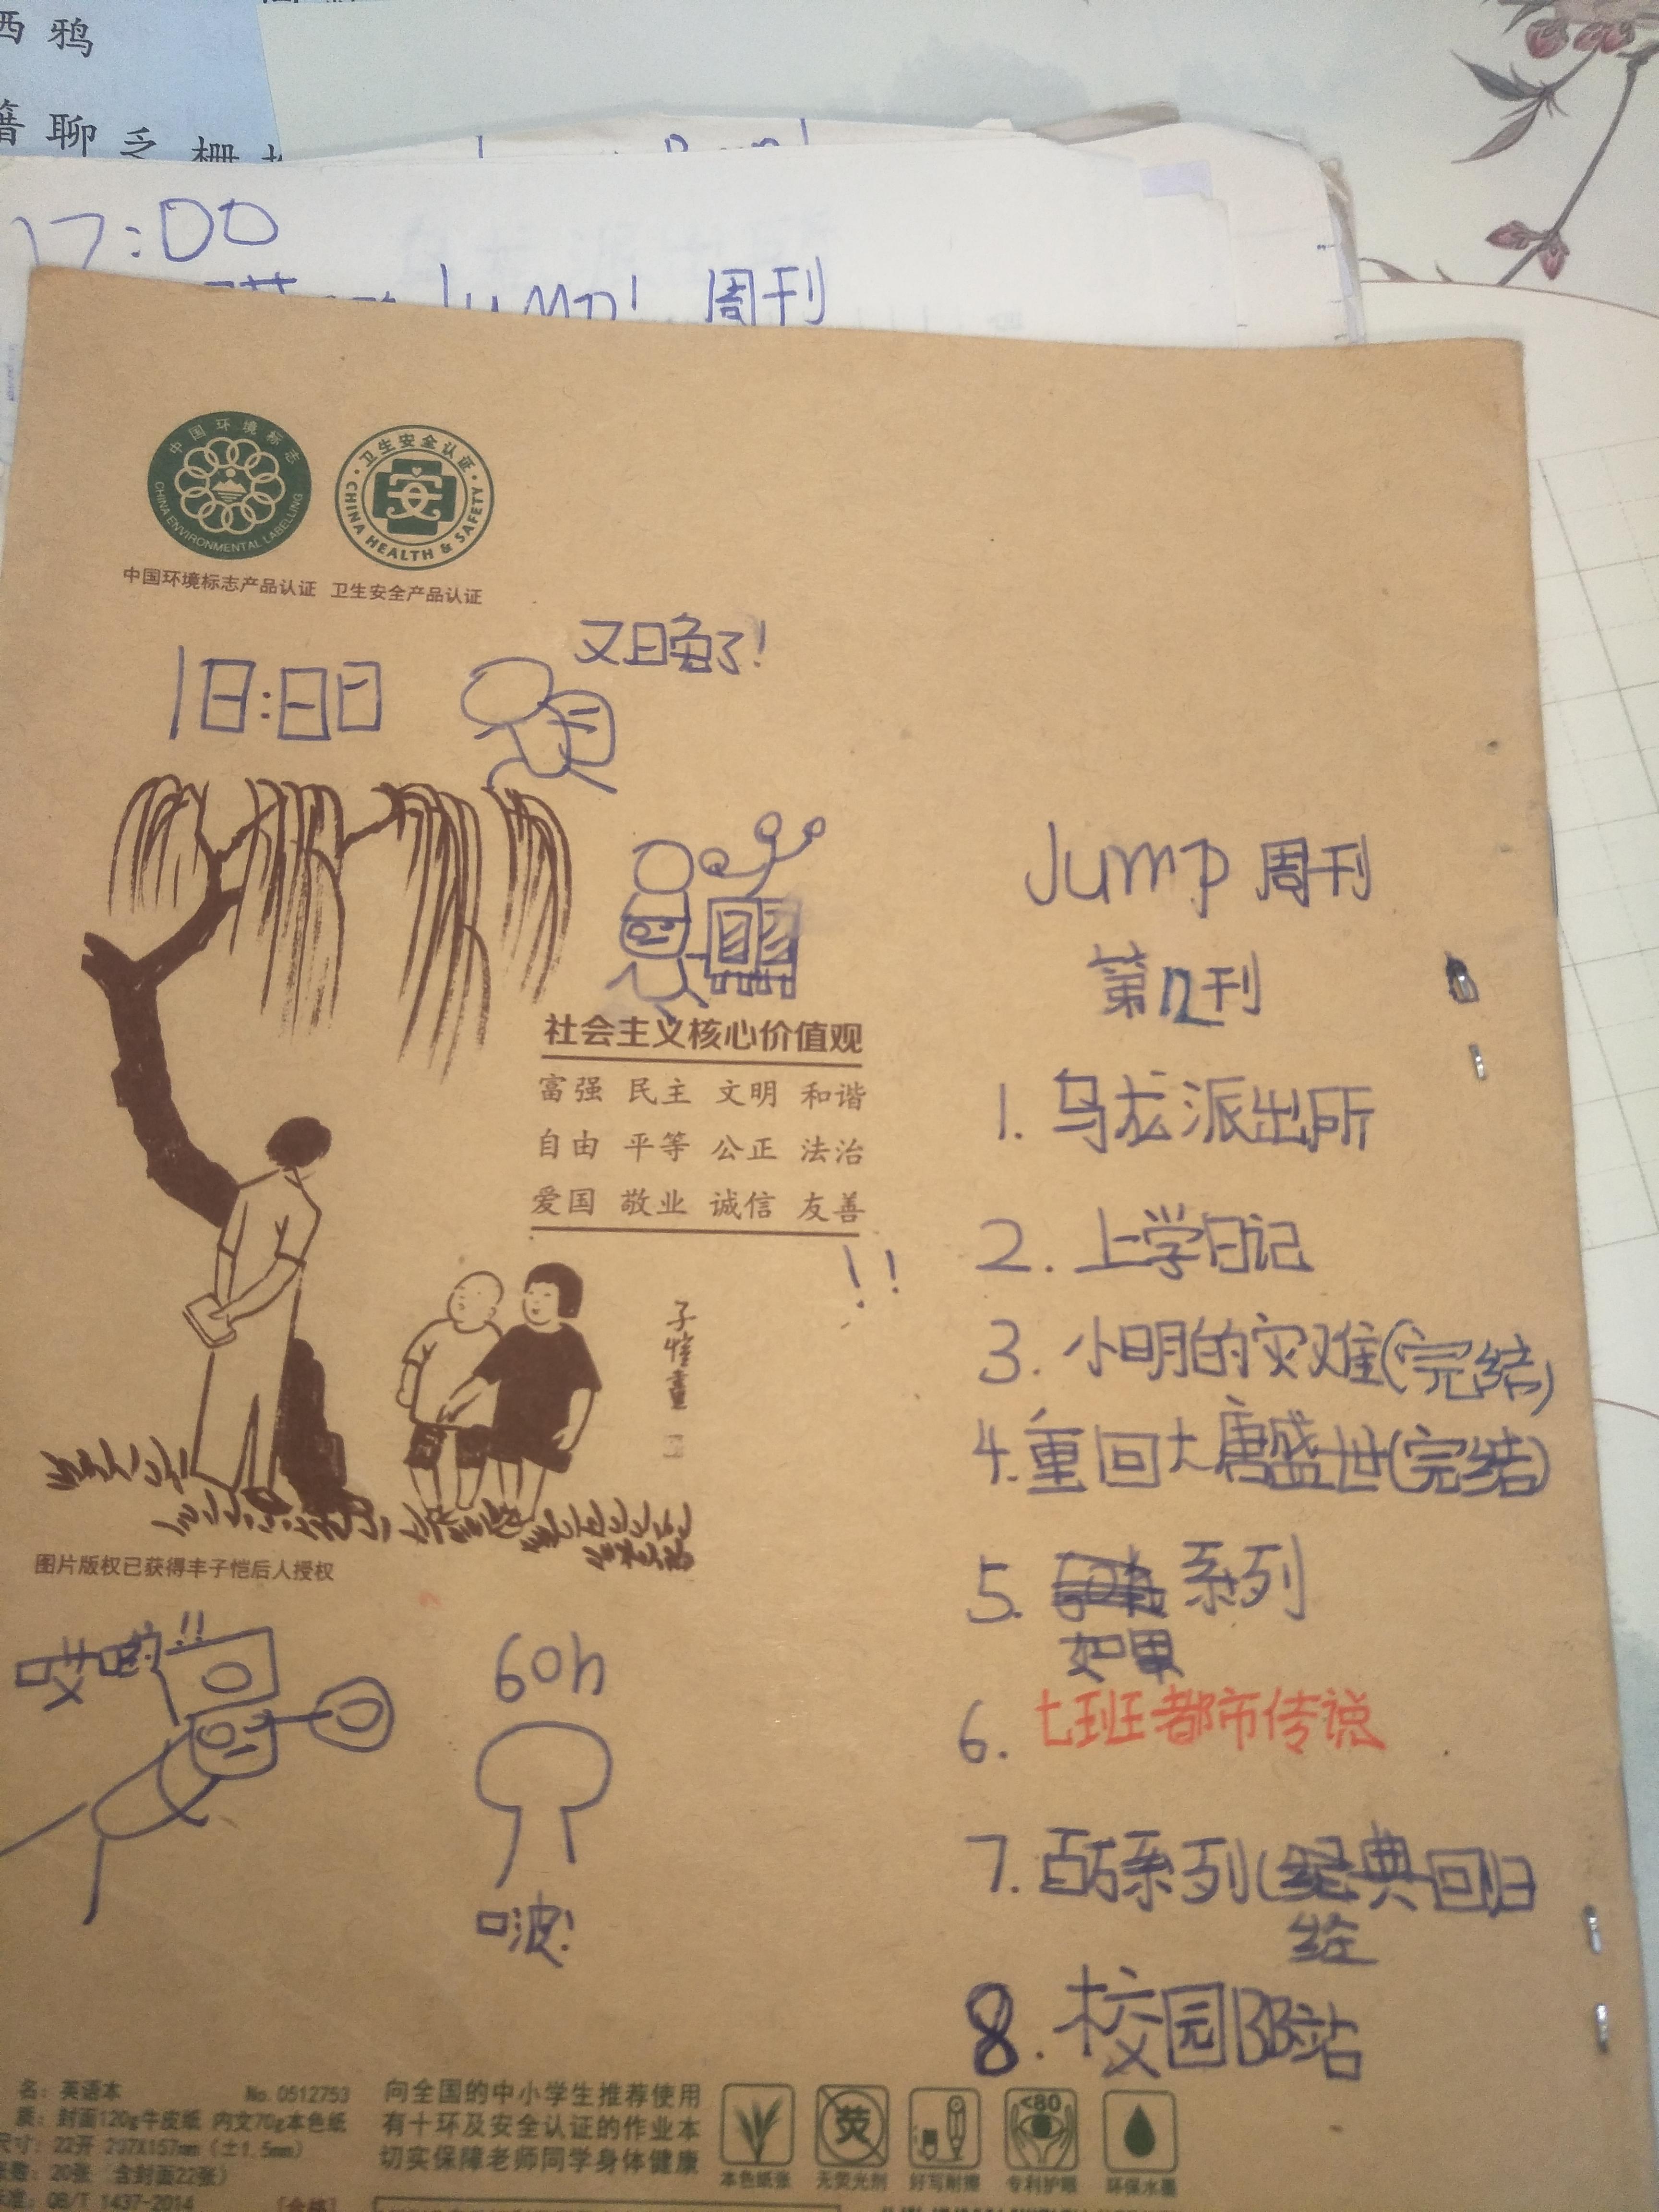 西 鸦
籍 聊 乏 栅
17:00
Jump! 周刊
中国环境标志
CHINA ENVIRONMENTAL LABELLING
卫生安全认证
安
CHINA HEALTH & SAFETY
中国环境标志产品认证 卫生安全产品认证
又日免了!
18:00
社会主义核心价值观
富强 民主 文明 和谐
自由 平等 公正 法治
爱国 敬业 诚信 友善
!!
子恺画
图片版权已获得丰子恺后人授权
Jump 周刊
第12刊
1. 乌龙派出所
2. 上学日记
3. 小明的灾难(完结)
4. 重回大唐盛世(完结)
5. 系列
如果
6. 七班都市传说
7. 百万系列(经典回归
8. 校园BB站
哎哟!!
60h
啵!
名: 英语本 No. 0512753
质: 封面120g牛皮纸 内文70g本色纸
尺寸: 22开 207X157mm (±1.5mm)
张数: 20张 (含封面22张)
标准: QB/T 1437-2014 [合格]
向全国的中小学生推荐使用
有十环及安全认证的作业本
切实保障老师同学身体健康
荧
<80
本色纸张 无荧光剂 好写耐擦 专利护眼 环保水墨